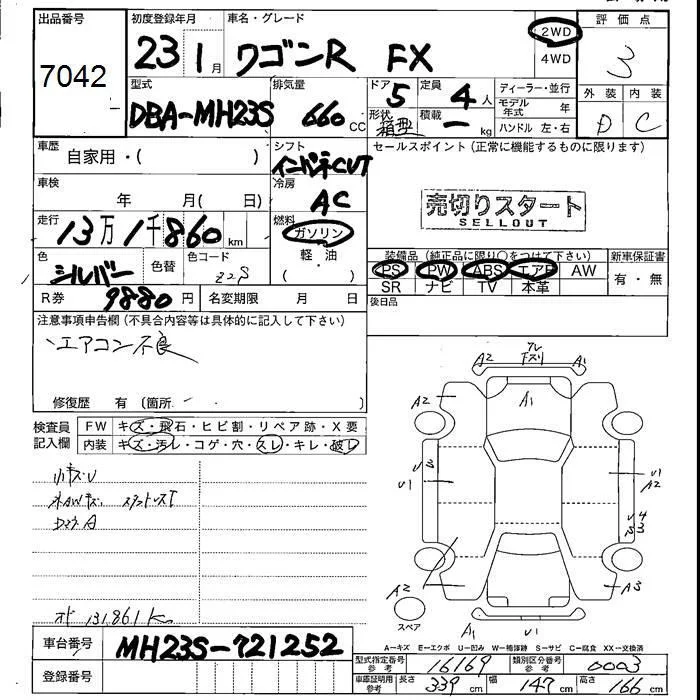 出品番号
7042
初度登録年月
23 1月
車名・グレード
ワゴンR FX
2WD
4WD
評価点
3
外装 内装
D C
型式
DBA-MH23S
排気量
660 CC
ドア 5
形状 箱型
定員 4人
積載 ー kg
ディーラー・並行
モデル年式 年
ハンドル 左・右
車歴
自家用・( )
シフト
インパネCVT
セールスポイント (正常に機能するものに限ります)
車検
年 月( 日)
冷房
AC
売切りスタート
SELLOUT
走行
13万1千860km
燃料
ガソリン
軽・油
色
シルバー
色替
色コード
Z2S
装備品 (純正品に限り○をつけて下さい)
PS PW ABS エアB AW
SR ナビ TV 本革
新車保証書
有・無
R券 9880円
名変期限 月 日
後日品
注意事項申告欄 (不具合内容等は具体的に記入して下さい)
エアコン不良
修復歴 有 (箇所
検査員
記入欄
FW キズ・飛石・ヒビ割・リペア跡・X要
内装 キズ・汚レ・コゲ・穴・スレ・キレ・破レ
小キズU
A
131,861K
A2 A1
A2 A1 A2
U1 U1
A2
A2 A3
A1 U1
スペア
A−キズ E−エクボ U−凹み W−補修跡 S−サビ C−腐食 XX−交換済
車台番号
MH23S-721252
登録番号
型式指定番号 参考 16169
類別区分番号 参考 0003
車庫証明用 参考 長さ 339cm 幅 147cm 高さ 166cm